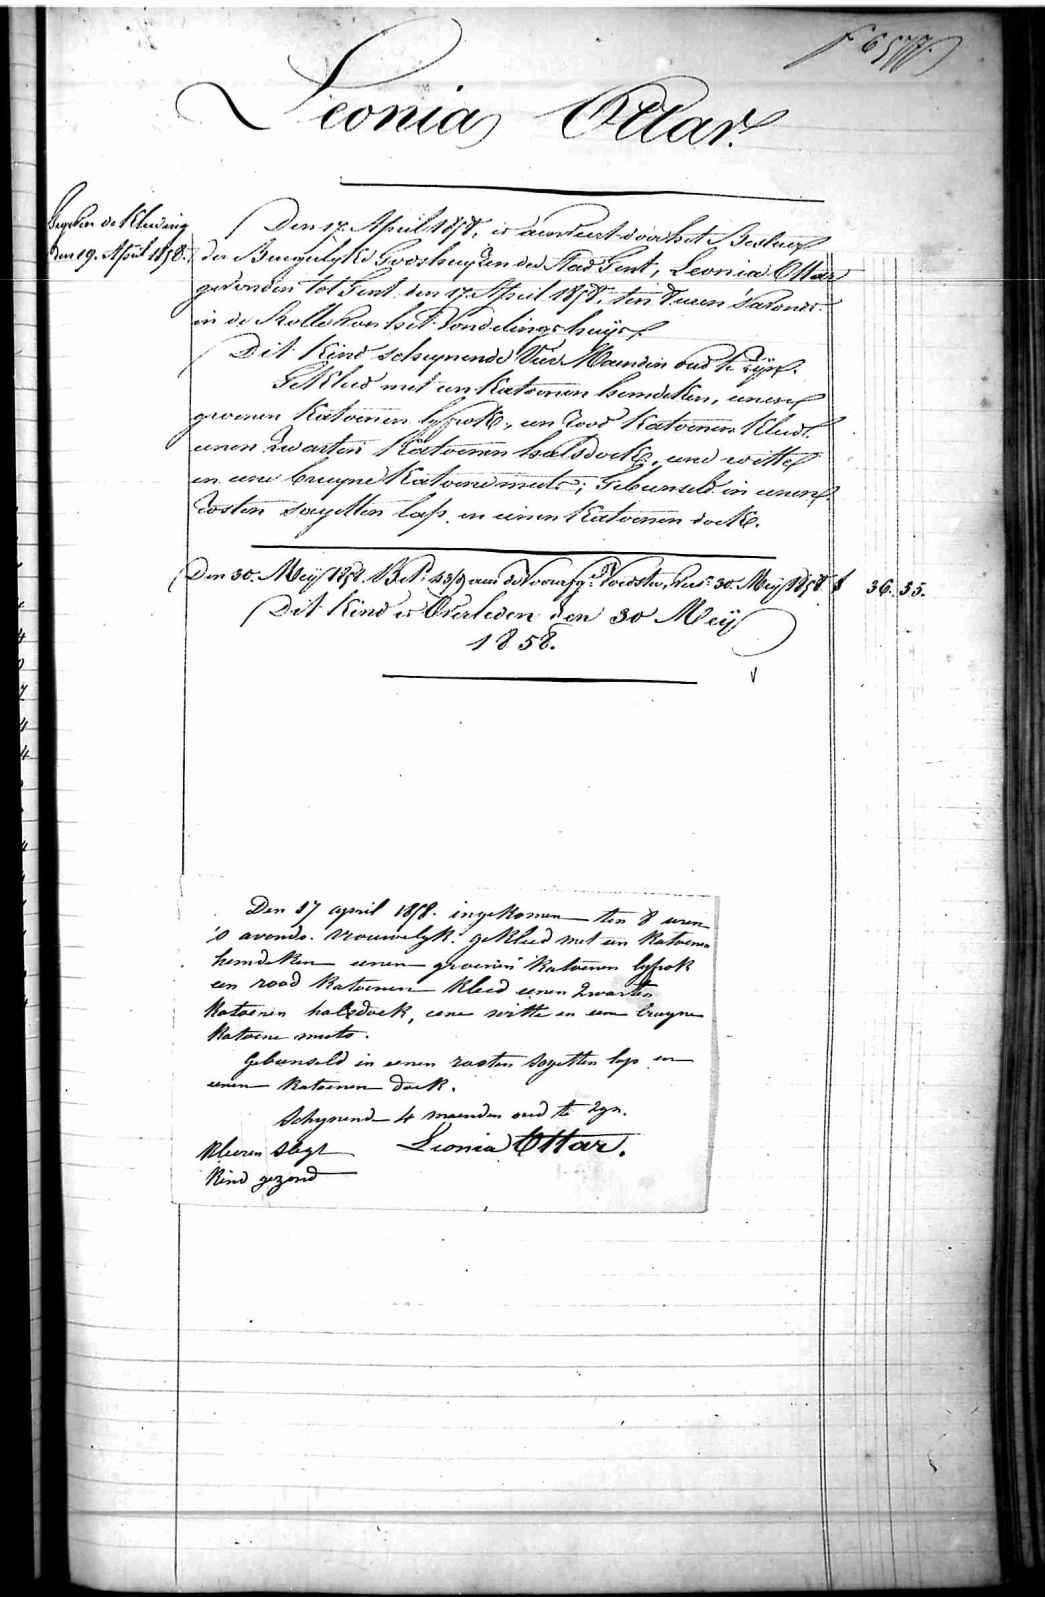 Leonia Ottar.
Gegeven de Kleeding
den 19. April 1858.
Den 17. April 1858, is aenveert door het Bestuer
der Burgerlyke Godshuyzen der Stad Gent, Leonia Ottar
gevonden tot Gent, den 17. April 1858, ten 8 uren 's avonds
in de Rolle van het Vondelings huys.
Dit Kind schynende Vier Maenden oud te zyn.
Gekleed met een Katoenen hemdeken, eenen
groenen Katoenen lyfrok, een rood Katoenen Kleed,
eenen zwarten Katoenen halsdoek, eene witte
en eene bruyne Katoene muts; Gebunseld in eenen
rosten sayetten lap, en eenen Katoenen doek.
Den 30. Meij 1858. Bet. 43/d aen de Voorsg. Voedster, 30. Meij 1858 f 36. 35.
Dit Kind is Overleden den 30 Meij
1858.
Den 17 april 1858. ingekomen ten 8 uren
's avonds. vrouwelyk. gekleed met een Katoenen
hemdeken eenen groenen Katoenen lyfrok
een rood Katoenen Kleed eenen zwarten
Katoenen halsdoek, eene witte en eene bruyne
Katoene muts.
Gebunseld in eenen rosten sayetten lap en
eenen Katoenen doek.
Schynend 4 maenden oud te zyn.
Kleeren slegt Leonia Ottar.
Kind gezond